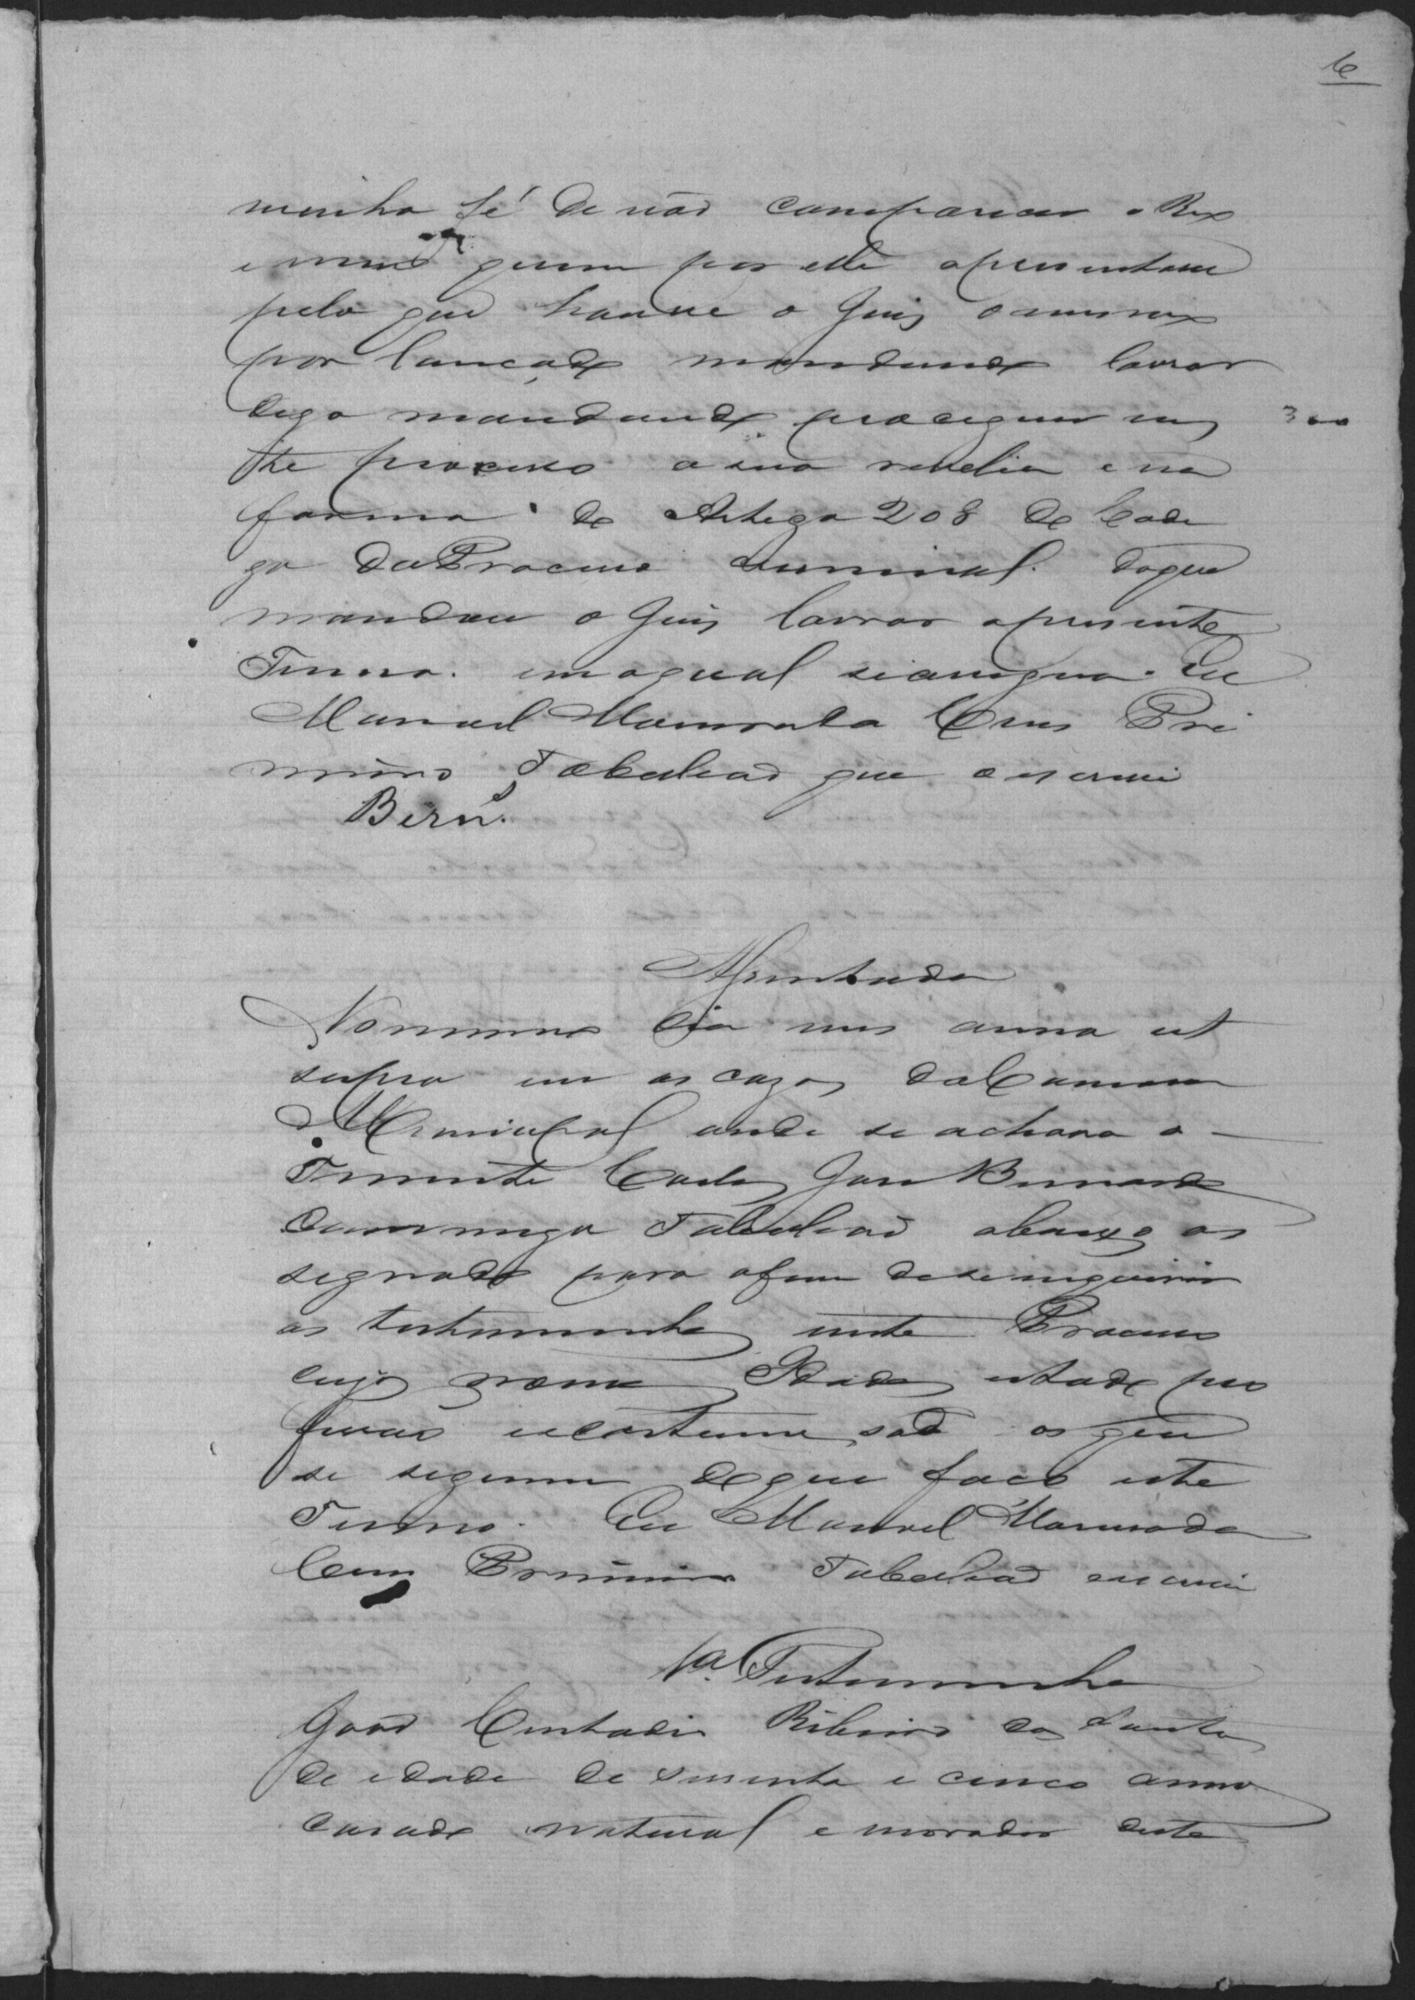 6
minha fé de não compareceu o Reo
e nem quem por elle apresentasse
pelo que houve o Juis o mesmo
por lançado mandando lavrar
digo mandando proceguir nes
300
te processo a sua revelia e na
forma do Artigo 208 do Codi
go do Processo Criminal. do que
mandou o Juis lavrar o presente
Termo. em o qual se assigna. Eu
Manoel da Cruz Pri
meiro Tabelião que o escrevi
Bern.
Assentada
No mesmo dia mes anno ut
supra em as cazas da Camara
Municipal onde se achava o
Tenente José Bernardo
Tabelião abaixo as
signado para afim de se inquirir
as testemunhas neste Processo
cujos nomes Idades estado pro
fição e costumes são os que
se seguem do que faço este
Termo. Eu Manoel da
Cruz Primeiro Tabelião escrevi
1a. Testemunha
João Ribeiro dos Santos
de idade de secenta e cinco annos
casado natural e morador deste